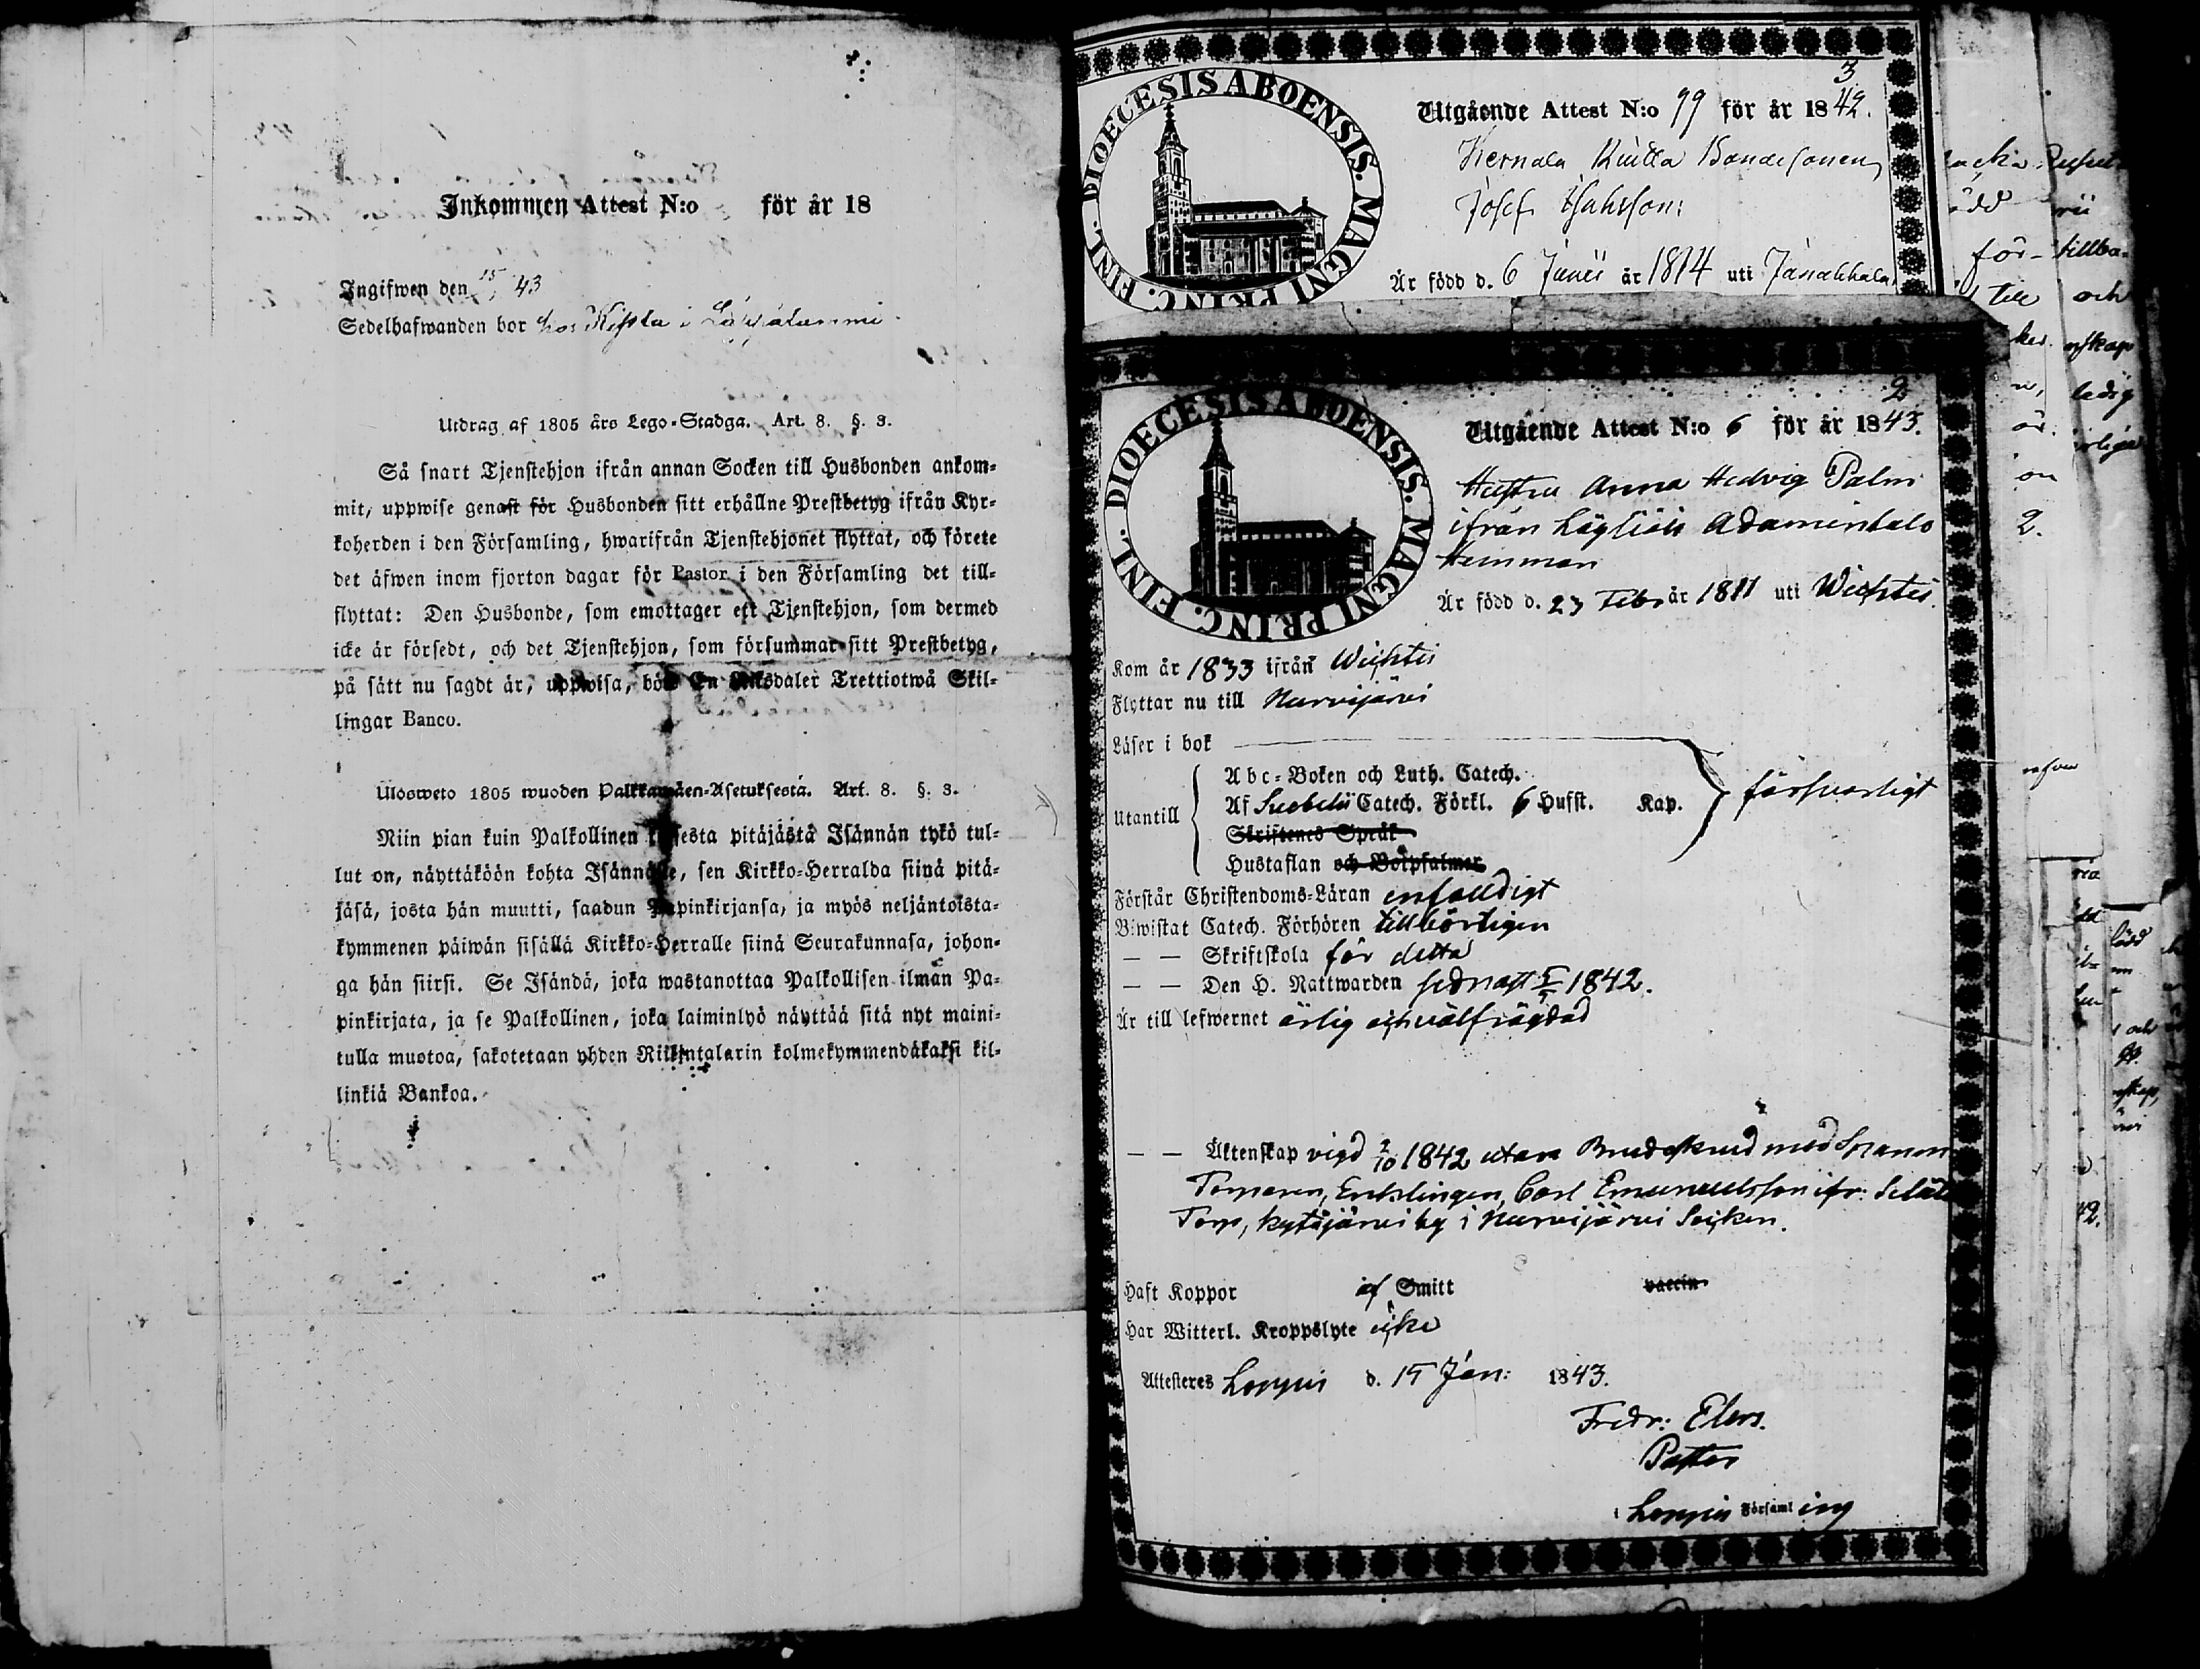 Inkommen Attest N:o för år 18
Ingifwen den 15/1 43
Sedelhafwanden bor hos
Utdrag af 1805 års Lego-Stadga. Art. 8. §. 3.
Så snart Tjenstehjon ifrån annan Socken till Husbonden ankom-
mit, uppwise genast för Husbonden sitt erhållne Prestbetyg ifrån Kyr-
koherden i den Församling, hwarifrån Tjenstehjonet flyttat, och förete
det äfwen inom fjorton dagar för Pastor i den Församling det till-
flyttat: Den Husbonde, som emottager ett Tjenstehjon, som dermed
icke är försedt, och det Tjenstehjon, som försummar sitt Prestbetyg,
på sätt nu sagdt är, uppwisa, böte En Riksdaler Trettiotwå Skil-
lingar Banco.
Ulosweto 1805 wuoden Palkkawäen-Asetuksesta. Art. 8. §. 3.
Niin pian kuin Palkollinen toisesta pitäjästä Isännän tykö tul-
lut on, näyttäköön kohta Isännälle, sen Kirkko-Herralda siinä pitä-
jäsä, josta hän muutti, saadun Papinkirjansa, ja myös neljäntoista-
kymmenen päiwän sisällä Kirkko-Herralle siinä Seurakunnasa, johon-
ga hän siirsi. Se Isändä, joka wastanottaa Palkollisen ilman Pa-
pinkirjata, ja se Palkollinen, joka laiminlyö näyttää sitä nyt maini-
tulla muotoa, sakotetaan yhden Riikintalarin kolmekymmendäkaksi kil-
linkiä Bankoa.
3
DIOECESIS ABOENSIS. MAGNI PRINC. FINL.
Utgående Attest N:o 99 för år 1842.
Kernala Bondesonen
Josef Isaksson:
Är född d. 6 Junii år 1814 uti Janakkala
2
DIOECESIS ABOENSIS. MAGNI PRINC. FINL.
Utgående Attest N:o 6 för år 1843.
Hustru Anna Hedvig Palm
ifrån Läyliäis Adamintalo
Hemman
Är född d. 23 Febr år 1811 uti Wichtis.
Kom år 1833 ifrån Wichtis
Flyttar nu till Nurmijärvi
Läser i bok
Utantill
Abc-Boken och Luth. Catech.
Af Svebelii Catech. Förkl. 6 Hufst. Kap.
Skriftenes Språk
Hustaflan och Botpsalmer
försvarligt
Förstår Christendoms-Läran enfalldigt
Biwistat Catech. Förhören tillbörligen
— — Skriftskola för detta
— — Den H. Nattwarden sednast 1842.
Är till lefwernet ärlig och välfrägdad
— — Äktenskap vigd 2/10 1842 utan Brudskrud med
Torparen, Enklingen, Carl Emanuelsson ifr:
Torp, Kytäjärvi by i Nurmijärvi Socken.
Haft Koppor af Smitt vaccin
Har Witterl. Kroppslyte icke
Attesteres Loppis d. 15 Jan: 1843.
Fredr: Elers.
Pastor
i Loppis Församling